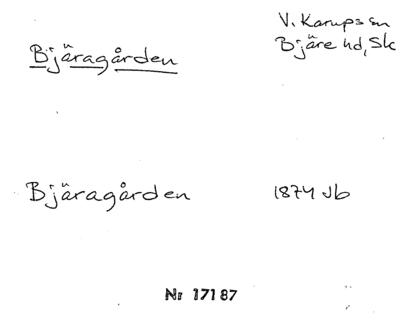 V. Karups sn
Bjäragården Bjäre hd, Sk
Bjäragården 1874 Jb
Nr 17187